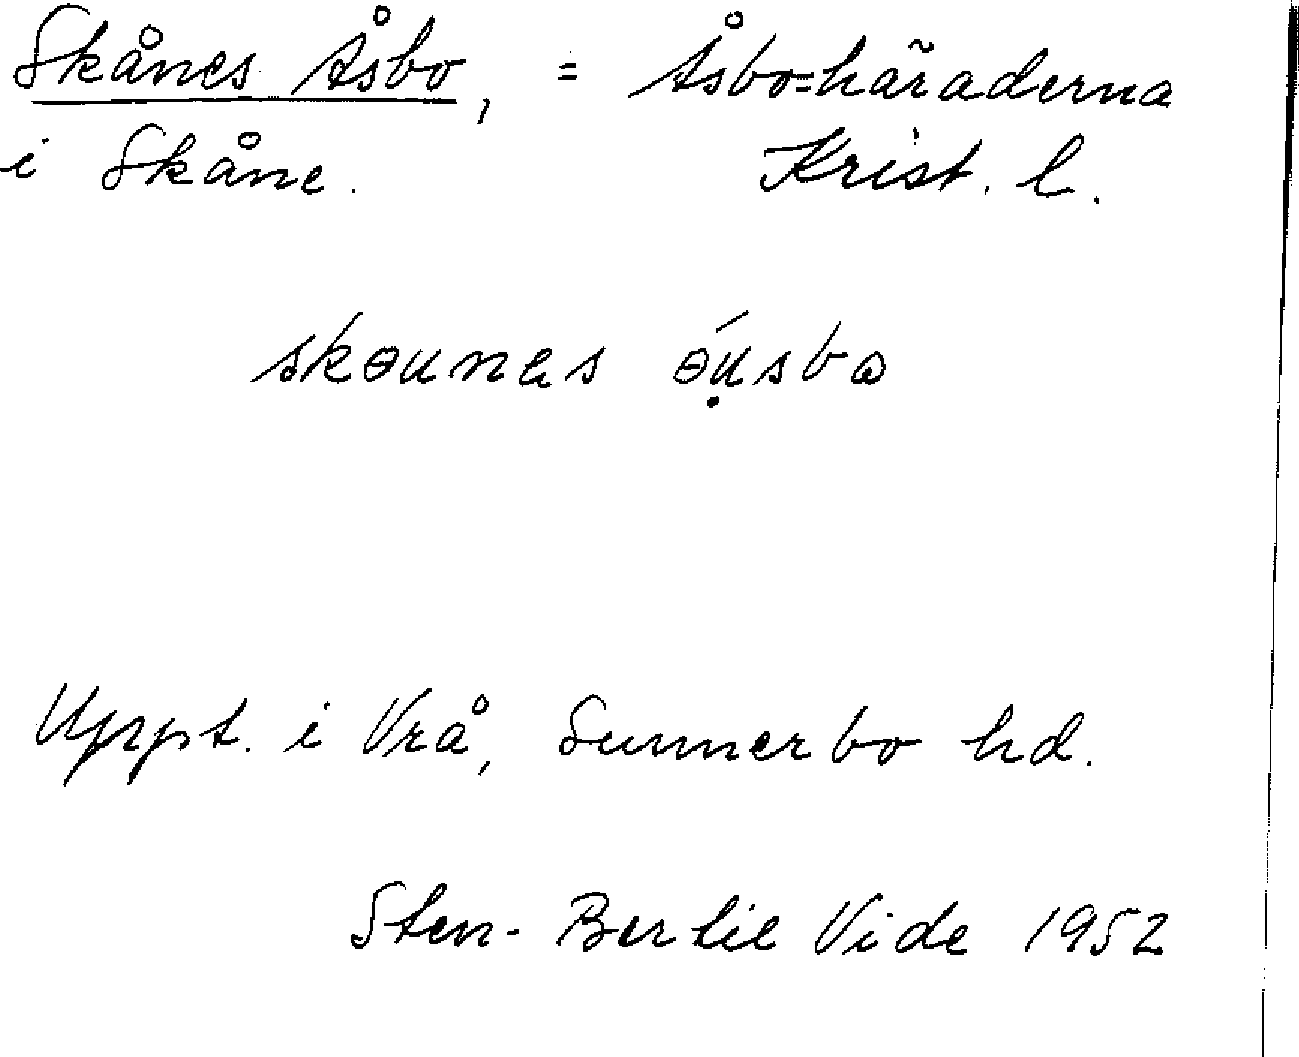 Skånes Åsbo, = Åsbo-häraderna
i Skåne. Krist. l.
skɵunɐs ɵ́ụsbɷ
Uppt. i Vrå, Sunnerbo hd.
Sten-Bertil Vide 1952